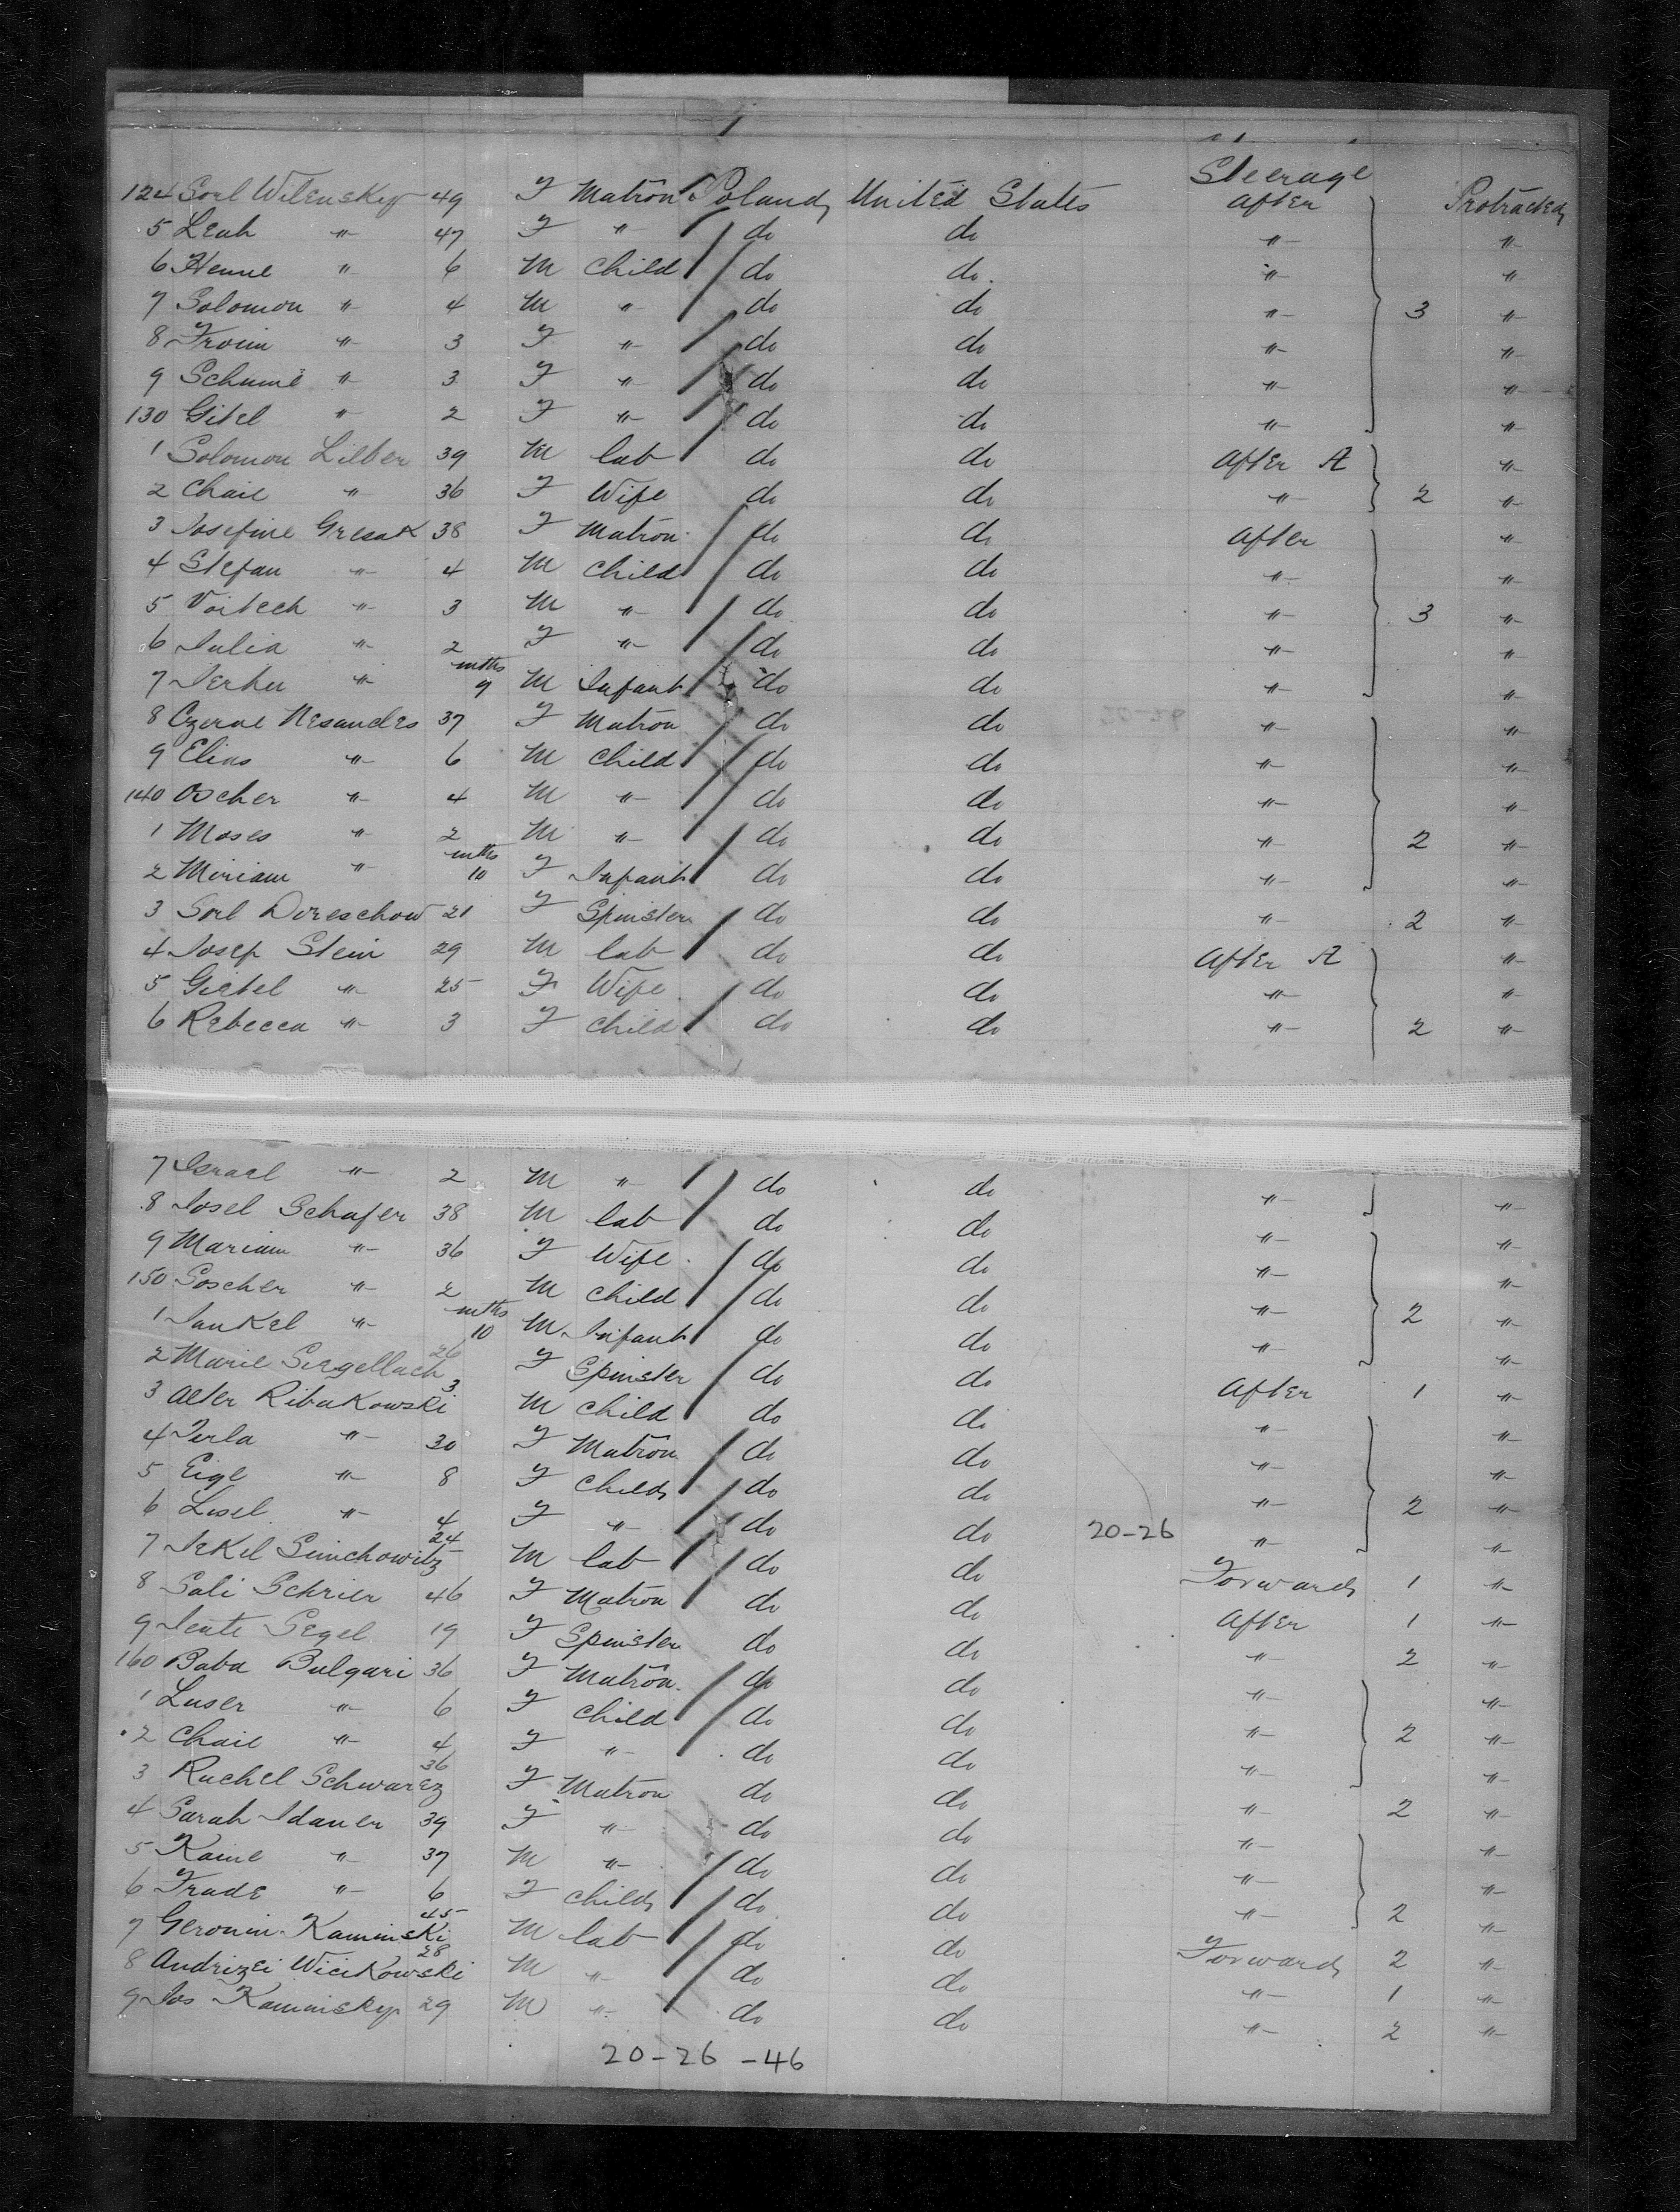 Steerage
124 Sorl Wilensky 49 F Matron Poland United States After Protracted
5 Leah " 47 F " do do " "
6 Henne " 6 M Child do do " "
7 Solomon " 4 M " do do " 3 "
8 Froim " 3 F " do do " "
9 Schume " 3 F " do do " "
130 Gitel " 2 F " do do " "
1 Solomon Lilber 39 M lab do do After A "
2 Chaie " 36 F Wife do do " 2 "
3 Josefine Gresak 38 F Matron do do After "
4 Stefan " 4 M Child do do " "
5 Voitech " 3 M " do do " 3 "
6 Julia " 2 F " do do " "
7 " mths 9 M Infant do do " "
8 Czerne Nesandes 37 F Matron do do " "
9 Elias " 6 M Child do do " "
140 Oscher " 4 M " do do " "
1 Moses " 2 M " do do " 2 "
2 Miriam " mths 10 F Infant do do " "
3 Sorl Direschow 21 F Spinster do do " 2 "
4 Josep Stein 29 M lab do do After A "
5 Gietel " 25 F Wife do do " "
6 Rebecca " 3 F Child do do " 2 "
7 Israel " 2 M " do do " "
8 Josel Schafer 38 M lab do do " "
9 Mariam " 36 F Wife do do " "
150 Soscher " 2 M Child do do " 2 "
1 Jankel " mths 10 M Infant do do " "
2 Marie Sergellach 26 F Spinster do do After 1 "
3 Alter Ribakowski 3 M Child do do " "
4 Perla " 30 F Matron do do " "
5 Eige " 8 F Child do do " 2 "
6 Lisel " 4 F " do do 20-26 " "
7 Jekel Simchowitz 24 M lab do do Forward 1 "
8 Sali Schrier 46 F Matron do do After 1 "
9 Jente Segel 19 F Spinster do do " 2 "
160 Baba Bulgari 36 F Matron do do " "
1 Luser " 6 F Child do do " 2 "
2 Chaie " 4 F " do do " "
3 Rachel Schwarez 36 F Matron do do " 2 "
4 Sarah Idauer 39 F " do do " "
5 Kaine " 37 M " do do " "
6 Frade " 6 F Child do do " 2 "
7 Geronin Kaminski 45 M lab do do Forward 2 "
8 Andrizei Wicikowski 28 M " do do " 1 "
9 Jos Kaminsky 29 M " do do " 2 "
20-26-46